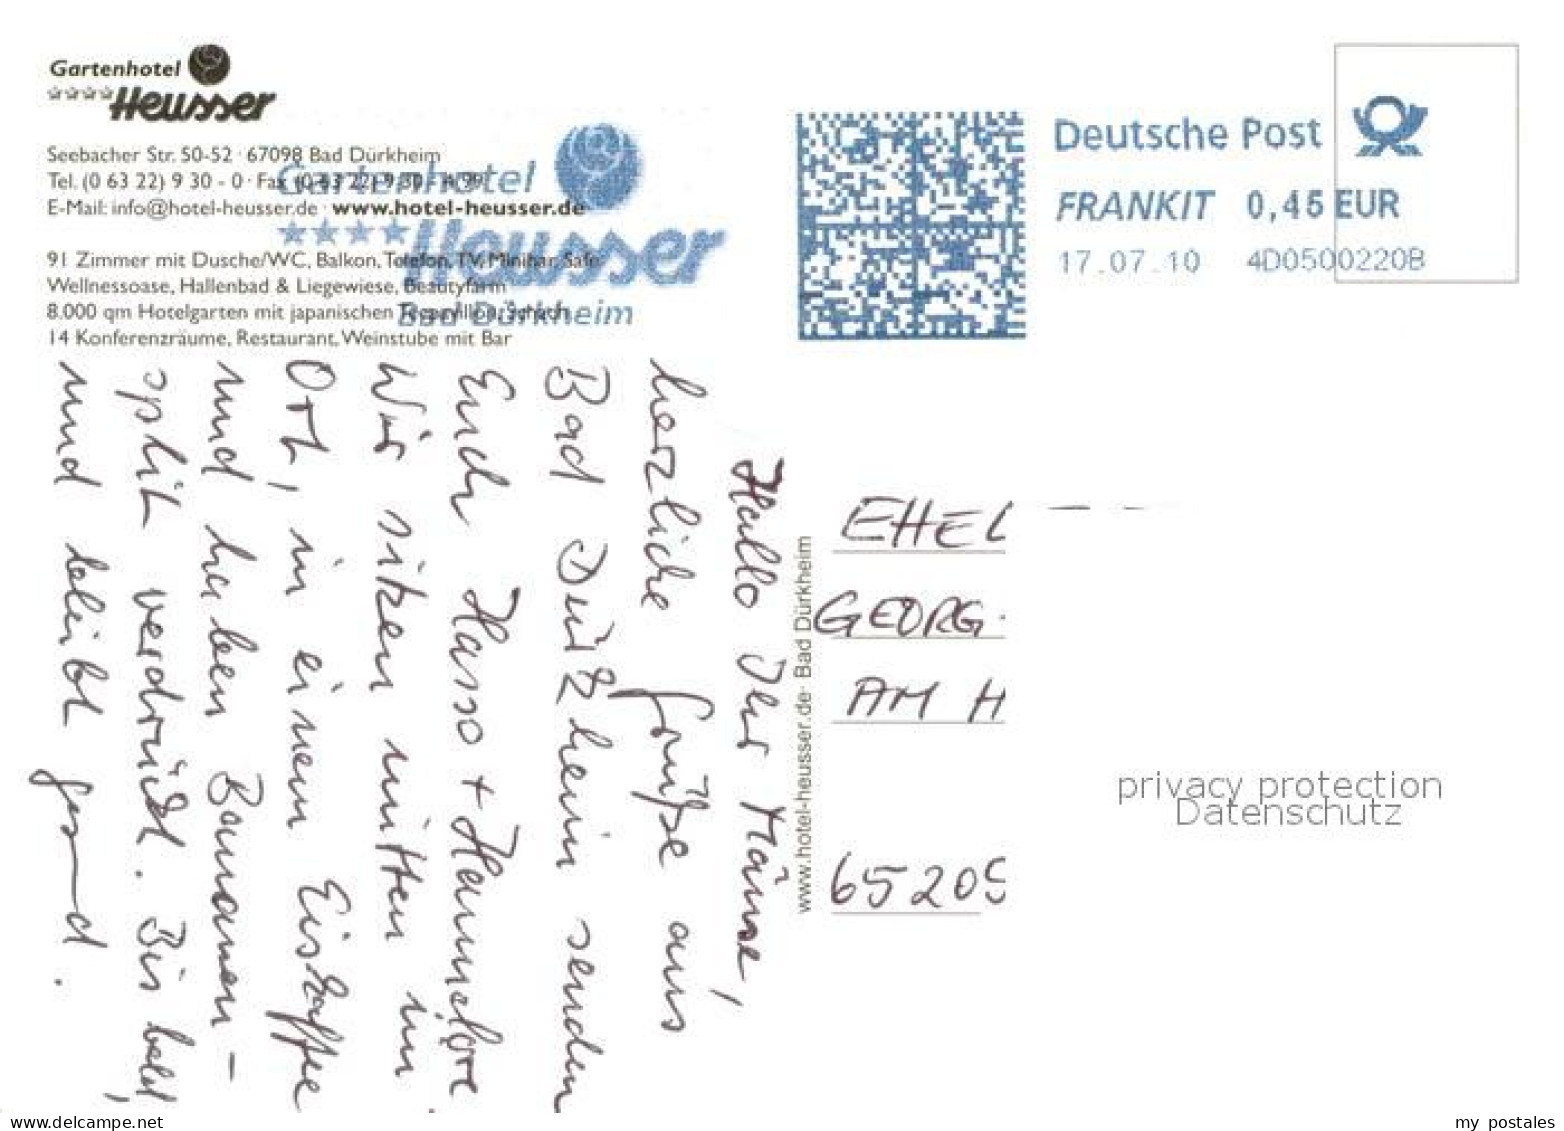 Gartenhotel
Heusser
Seebacher Str. 50-52 · 67098 Bad Dürkheim
Tel. (0 63 22) 9 30 - 0 · Fax (0 63 22) 9 30
E-Mail: info@hotel-heusser.de · www.hotel-heusser.de
91 Zimmer mit Dusche/WC, Balkon, Telefon, TV, Minibar, Safe
Wellnessoase, Hallenbad & Liegewiese, Beautyfarm
8.000 qm Hotelgarten mit japanischen Teepavillon,
14 Konferenzräume, Restaurant, Weinstube mit Bar
Gartenhotel
Heusser
Bad Dürkheim
Deutsche Post
FRANKIT 0,45 EUR
17.07.10 4D0500220B
Hallo Ihr Mäuse,
herzliche Grüße aus
Bad Dürkheim senden
Euch Hasso + Hannelore
Wir sitzen mitten im
Ort, in einem Eiskaffee
und haben Bananen-
split verdrückt. Bis bald,
und bleibt gesund.
www.hotel-heusser.de · Bad Dürkheim
EHEL
GEORG-
AM H
65205
privacy protection
Datenschutz
www.delcampe.net
my_postales